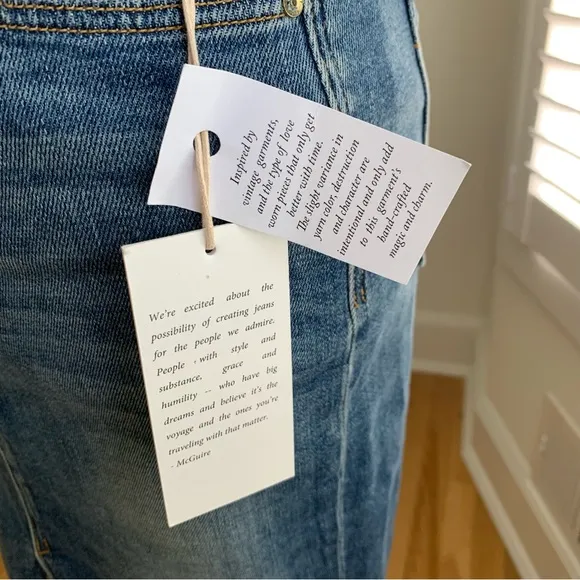 Inspired by
vintage garments,
and the type of love
worn pieces that only get
better with time.
The slight variance in
yarn color, destruction
and character are
intentional and only add
to this garment's
hand-crafted
magic and charm.
We're excited about the
possibility of creating jeans
for the people we admire.
People with style and
substance, grace and
humility -- who have big
dreams and believe it's the
voyage and the ones you're
traveling with that matter.
- McGuire